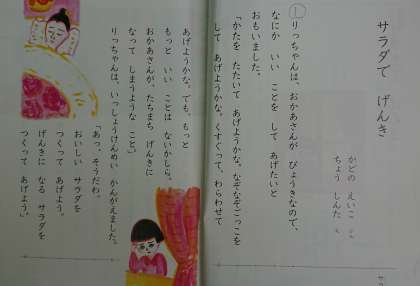 サラダで げんき
かどの えいこ さく
ちょう しんた え
①
りっちゃんは、おかあさんが びょうきなので、
なにか いい ことを して あげたいと
おもいました。
「かたを たたいて あげようかな。なぞなぞごっこを
して あげようかな。くすぐって、わらわせて
あげようかな。でも、もっと
もっと いい ことは ないかしら。
おかあさんが、たちまち げんきに
なって しまうような こと。」
りっちゃんは、いっしょうけんめい かんがえました。
「あっ、そうだわ。
おいしい サラダを
つくって あげよう。
げんきに なる サラダを
つくって あげよう。」